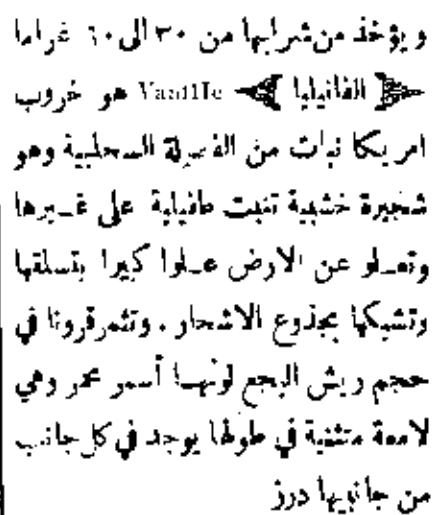 ويؤخذ من شرابها من ٣٠ الى ٦٠ غراما
﴿ الفانيليا ﴾ Vanille هو خروب
امريكا نبات من الفصيلة السحلبية وهو
شجيرة خشبية تنبت طفيلية على غيرها
وتعلو عن الارض علوا كبيرا بتسلقها
وتشبكها بجذوع الاشجار . وتثمر قرونا في
حجم ريش البجع لونها أسمر محمر وهي
لامعة متثنية في طولها يوجد في كل جانب
من جانبيها درز